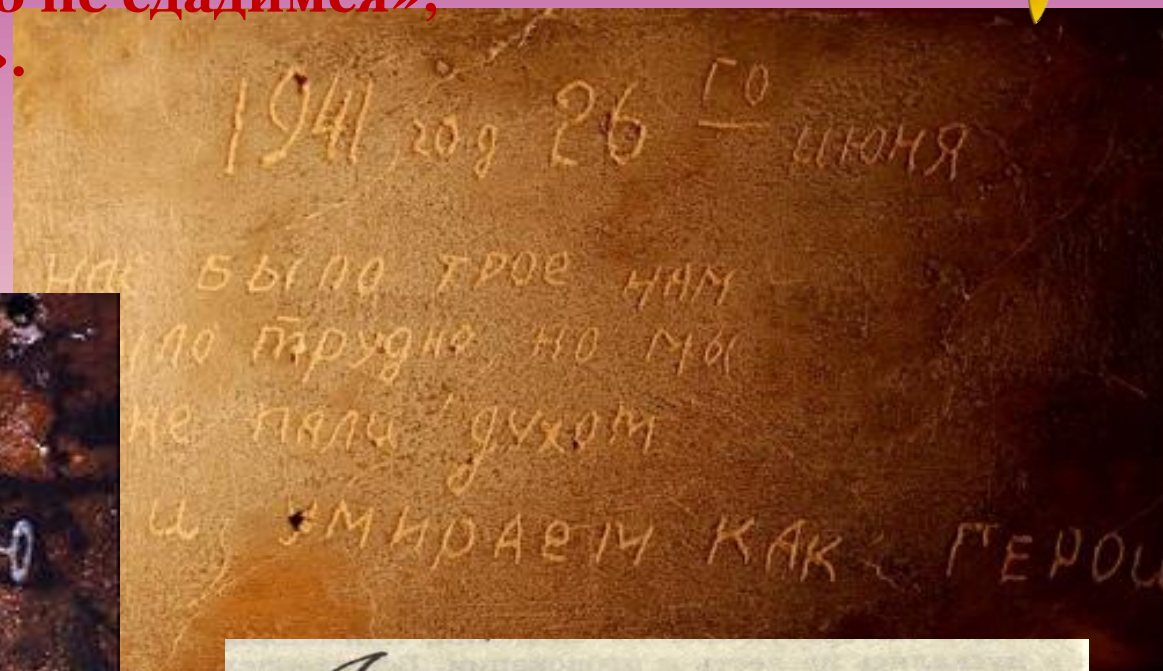 не сдадимся»,
1941 год 26 го июня
нас было трое нам
ло трудно, но мы
не пали духом
и умираем как герои